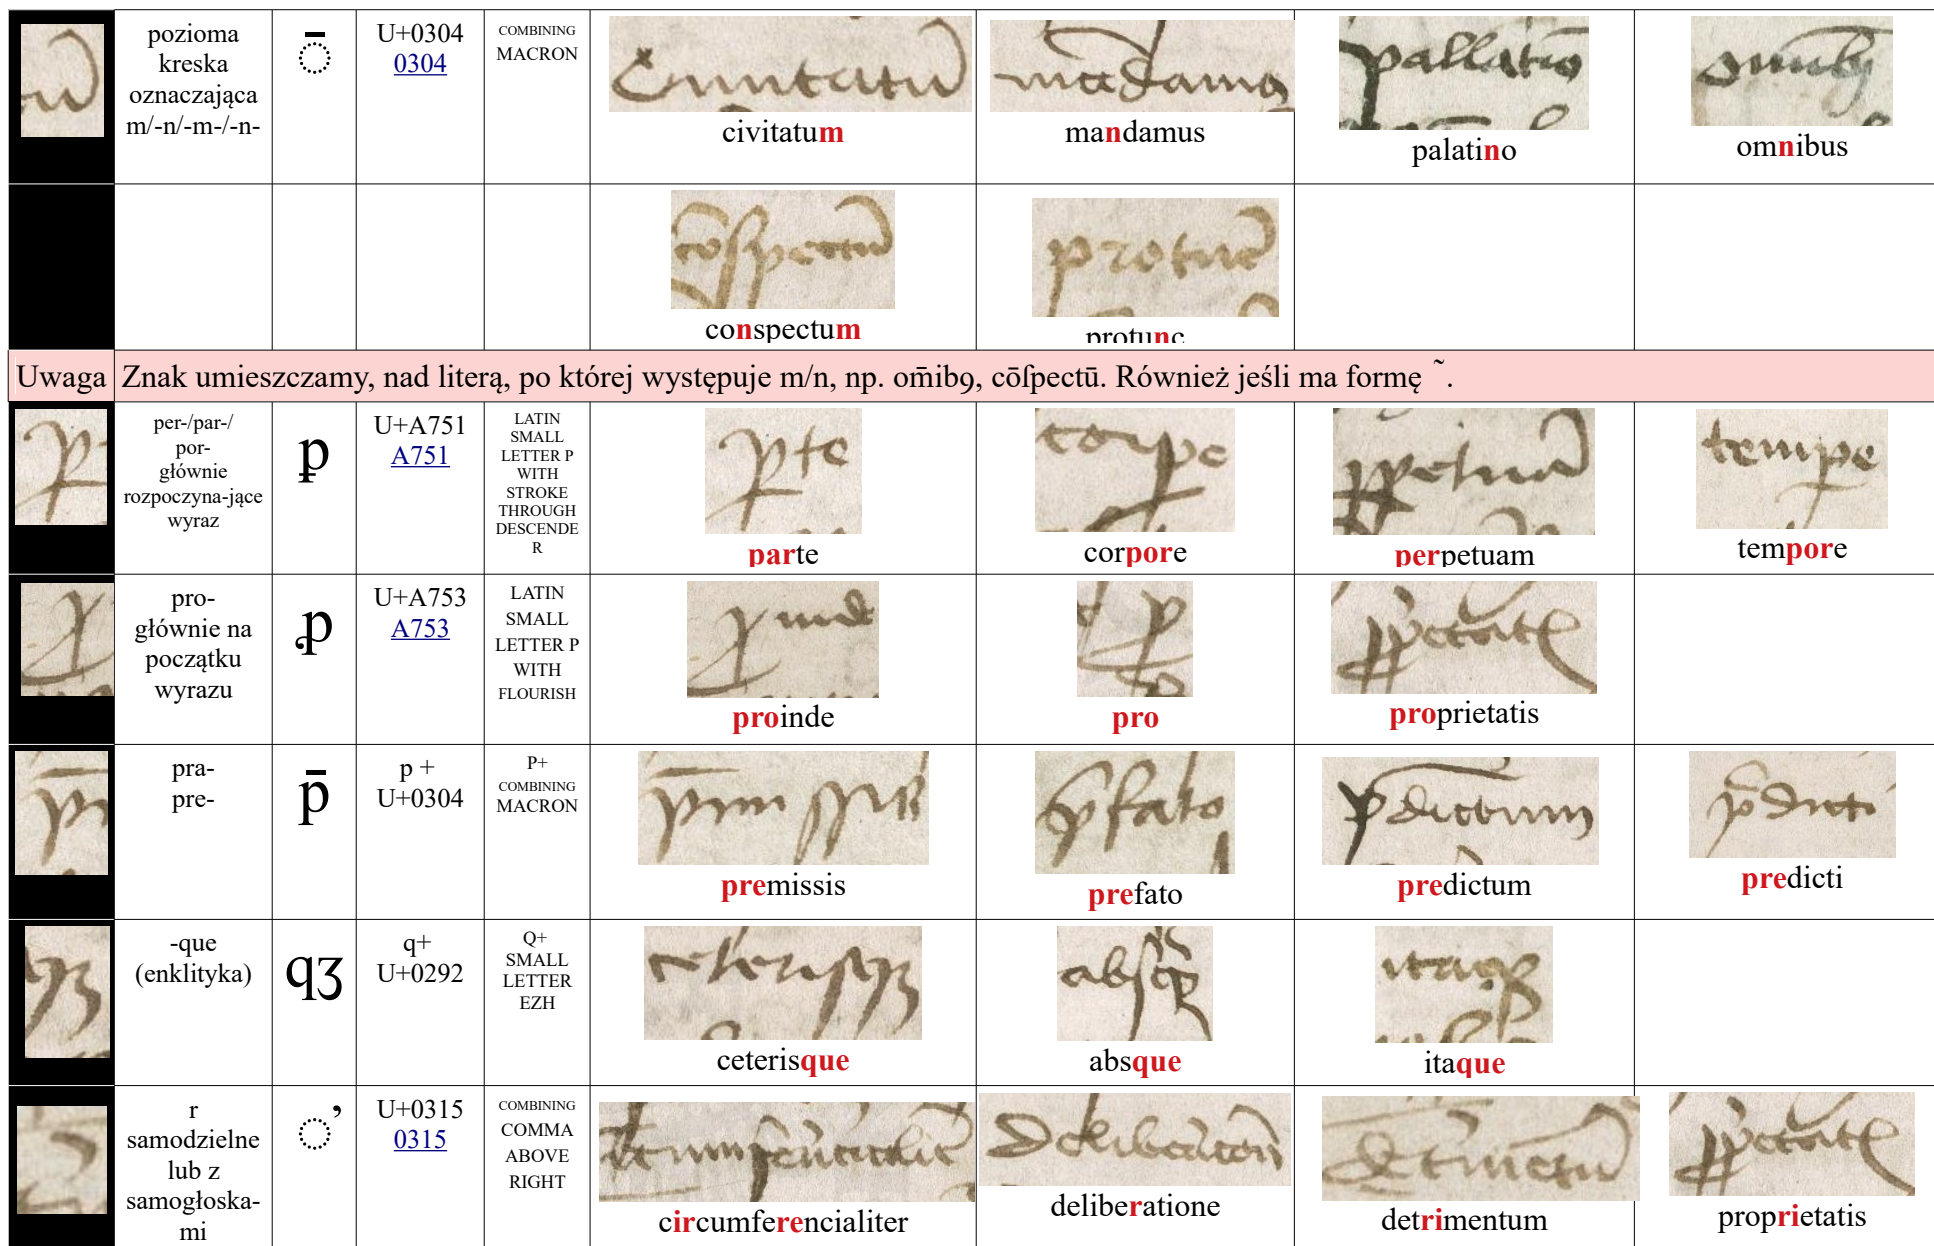 pozioma
kreska
oznaczająca
m/-n/-m-/-n-
◌̄
U+0304
0304
COMBINING
MACRON
civitatum
mandamus
palatino
omnibus
conspectum
protunc
Uwaga
Znak umieszczamy, nad literą, po której występuje m/n, np. om̄ibꝯ, cōſpectū. Również jeśli ma formę ˜.
per-/par-/
por-
głównie
rozpoczyna-jące
wyraz
ꝑ
U+A751
A751
LATIN
SMALL
LETTER P
WITH
STROKE
THROUGH
DESCENDE
R
parte
corpore
perpetuam
tempore
pro-
głównie na
początku
wyrazu
ꝓ
U+A753
A753
LATIN
SMALL
LETTER P
WITH
FLOURISH
proinde
pro
proprietatis
pra-
pre-
p̄
p +
U+0304
P+
COMBINING
MACRON
premissis
prefato
predictum
predicti
-que
(enklityka)
qʒ
q+
U+0292
Q+
SMALL
LETTER
EZH
ceterisque
absque
itaque
r
samodzielne
lub z
samogłoska-
mi
◌̕
U+0315
0315
COMBINING
COMMA
ABOVE
RIGHT
circumferencialiter
deliberatione
detrimentum
proprietatis